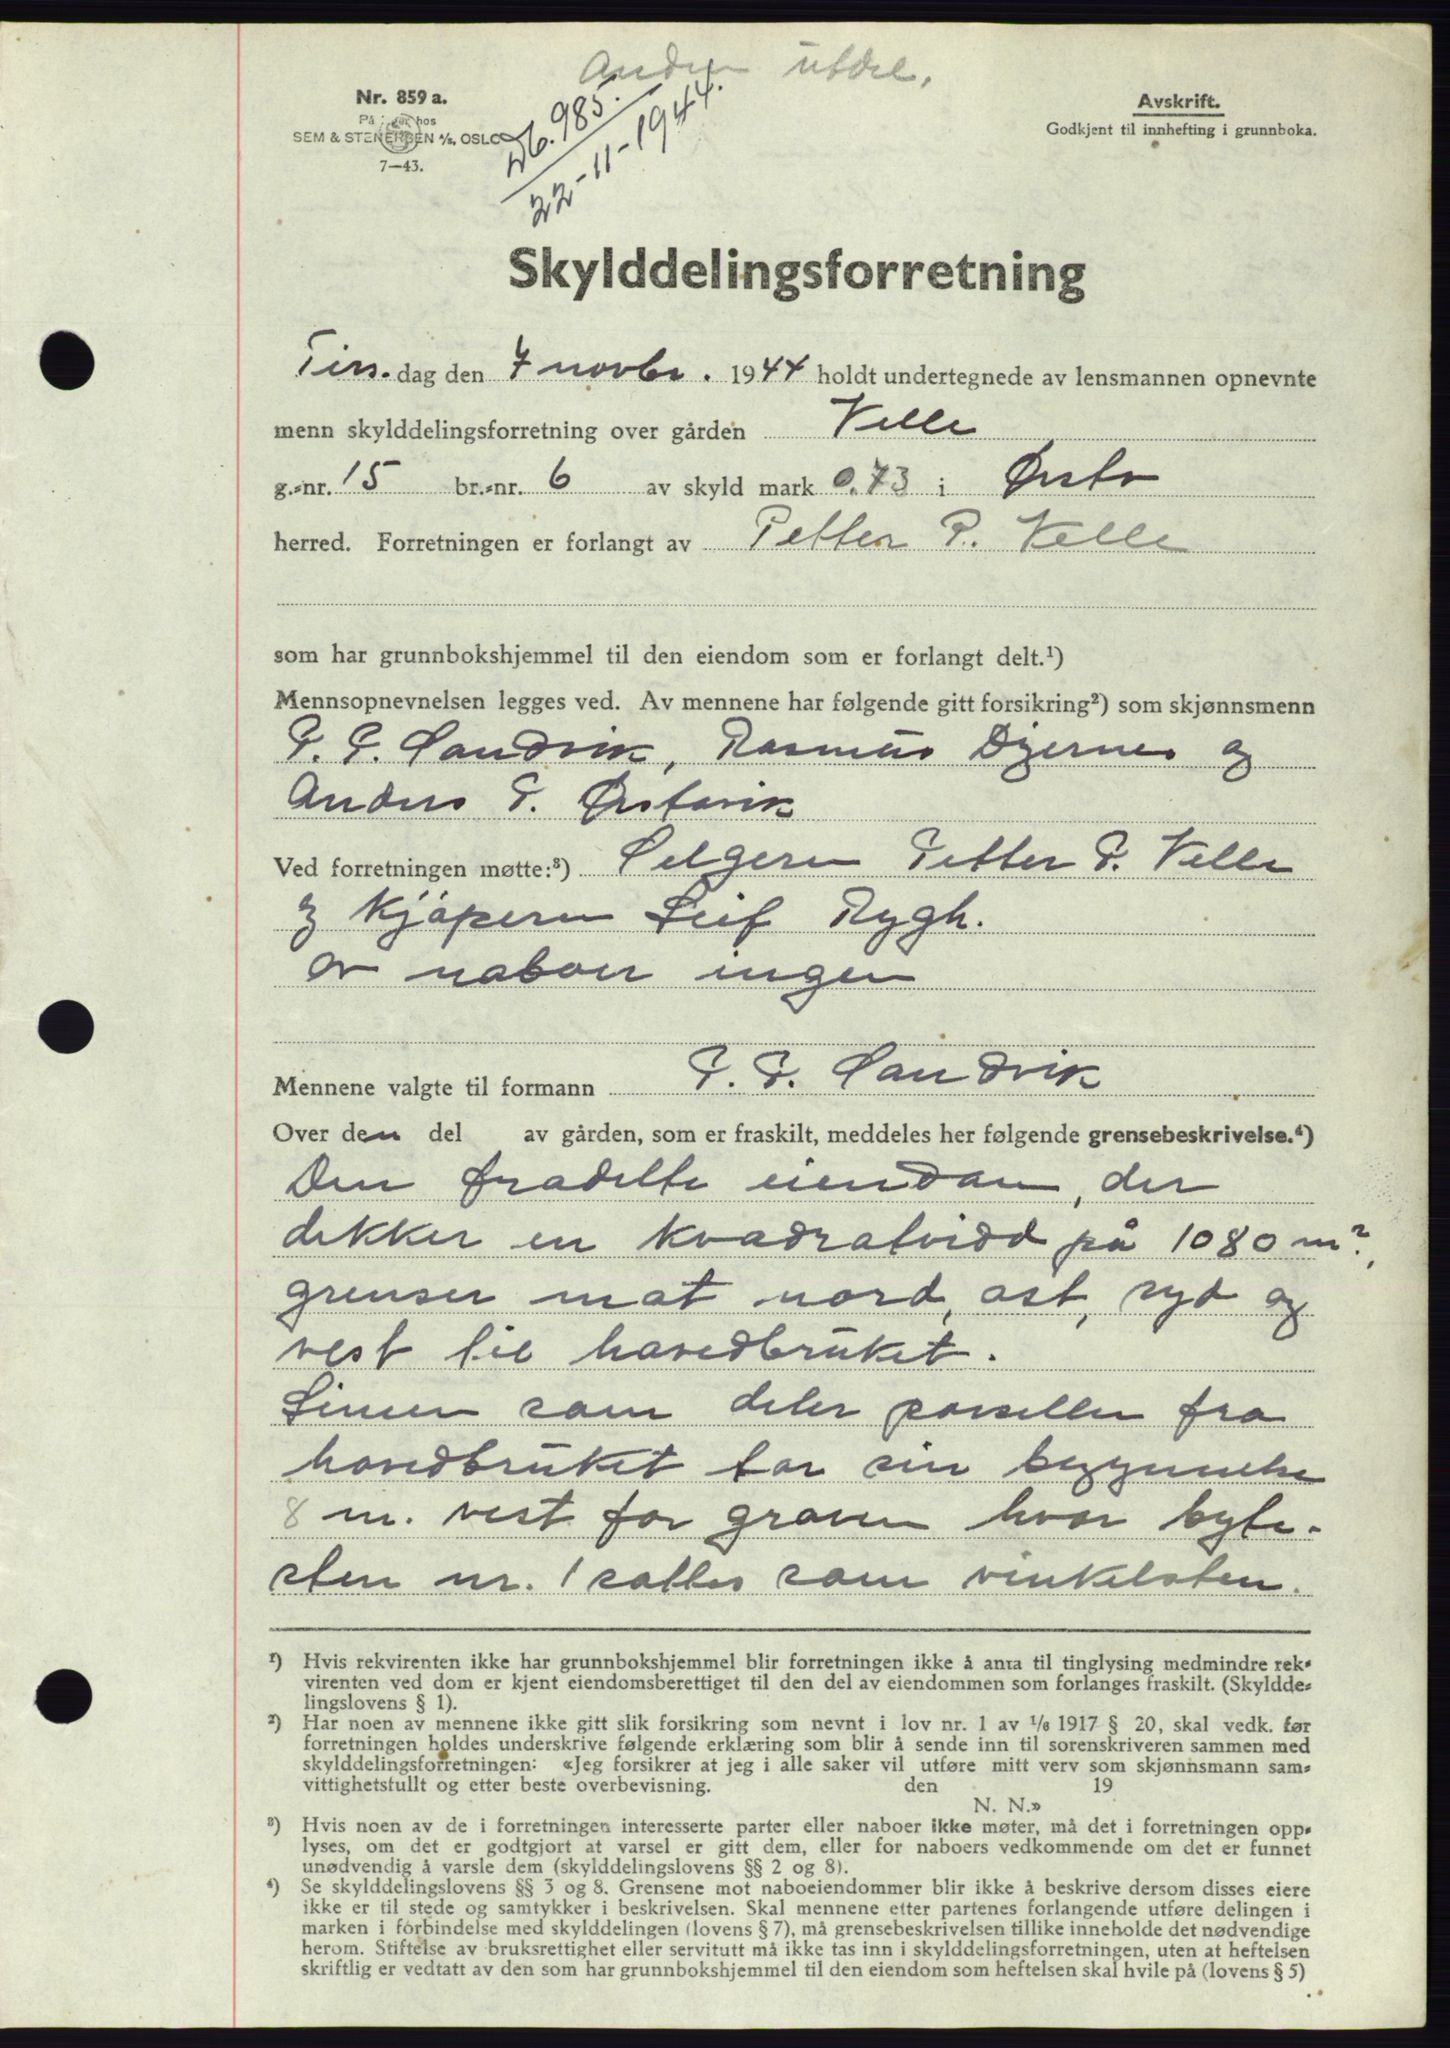 Anders utdel.
Nr. 859 a.
På lager hos
SEM & STENERSEN A/S, OSLO
7—43.
Db. 985.
22-11-1944.
Avskrift.
Godkjent til innhefting i grunnboka.
Skylddelingsforretning
Tirs.dag den 7 novbr. 1944 holdt undertegnede av lensmannen opnevnte
menn skylddelingsforretning over gården Velle
g.-nr. 15 br.-nr. 6 av skyld mark 0.73 i Ørsta
herred. Forretningen er forlangt av Petter P. Velle
som har grunnbokshjemmel til den eiendom som er forlangt delt.¹)
Mennsopnevnelsen legges ved. Av mennene har følgende gitt forsikring²) som skjønnsmenn
P. P. Sandvik, Rasmus Digernes og
Anders P. Ørstavik
Ved forretningen møtte:³) Selgeren Petter P. Velle
og Kjøperen Leif Rygh.
av naboer ingen
Mennene valgte til formann P. P. Sandvik
Over den del av gården, som er fraskilt, meddeles her følgende grensebeskrivelse.⁴)
Den fradelte eiendom, der
dekker en kvadratvidd på 1080 m²,
grenser mot nord, øst, syd og
vest til hovedbruket.
Linien som deler parsellen fra
hovedbruket tar sin begynnelse
8 m. vest for graven hvor byte-
sten nr. 1 sattes som vinkelsten.
¹) Hvis rekvirenten ikke har grunnbokshjemmel blir forretningen ikke å anta til tinglysing medmindre rek-
virenten ved dom er kjent eiendomsberettiget til den del av eiendommen som forlanges fraskilt. (Skyldde-
lingslovens § 1).
²) Har noen av mennene ikke gitt slik forsikring som nevnt i lov nr. 1 av 1/6 1917 § 20, skal vedk. før
forretningen holdes underskrive følgende erklæring som blir å sende inn til sorenskriveren sammen med
skylddelingsforretningen: «Jeg forsikrer at jeg i alle saker vil utføre mitt verv som skjønnsmann sam-
vittighetsfullt og etter beste overbevisning. den 19
N. N.»
³) Hvis noen av de i forretningen interesserte parter eller naboer ikke møter, må det i forretningen opp-
lyses, om det er godtgjort at varsel er gitt dem, eller for naboers vedkommende om det er funnet
unødvendig å varsle dem (skylddelingslovens §§ 2 og 8).
⁴) Se skylddelingslovens §§ 3 og 8. Grensene mot naboeiendommer blir ikke å beskrive dersom disses eiere
ikke er til stede og samtykker i beskrivelsen. Skal mennene etter partenes forlangende utføre delingen i
marken i forbindelse med skylddelingen (lovens § 7), må grensebeskrivelsen tillike inneholde det nødvendige
herom. Stiftelse av bruksrettighet eller servitutt må ikke tas inn i skylddelingsforretningen, uten at heftelsen
skriftlig er vedtatt av den som har grunnbokshjemmel til den eiendom som heftelsen skal hvile på (lovens § 5)